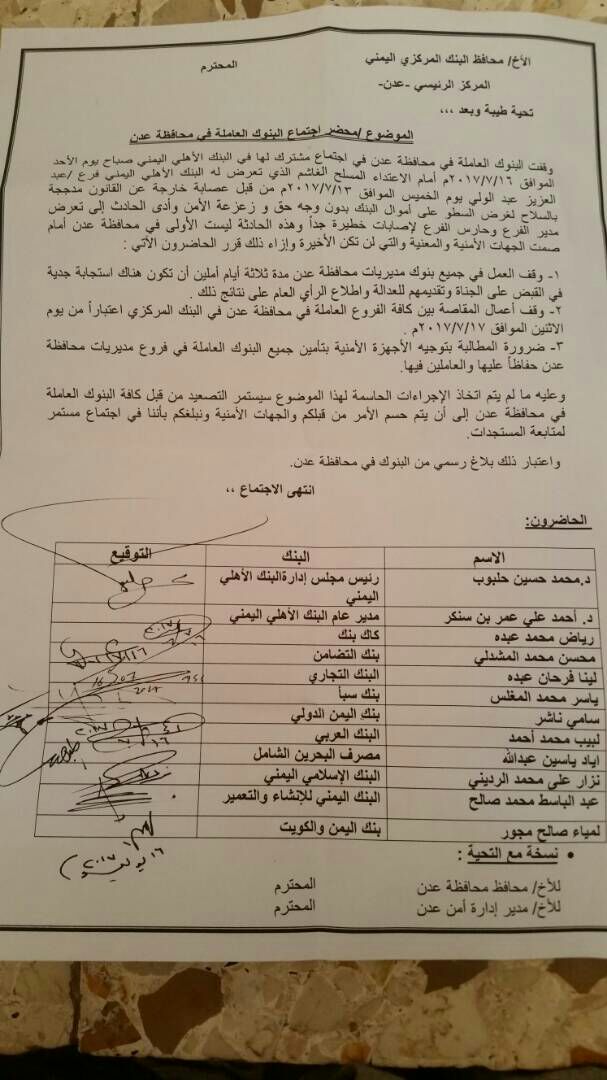 الأخ/ محافظ البنك المركزي اليمني المحترم
المركز الرئيسي -عدن-
تحية طيبة وبعد ,,,
الموضوع /محضر اجتماع البنوك العاملة في محافظة عدن
وقفت البنوك العاملة في محافظة عدن في اجتماع مشترك لها في البنك الأهلي اليمني صباح يوم الأحد
الموافق ٢٠١٧/٧/١٦م أمام الاعتداء المسلح الغاشم الذي تعرض له البنك الأهلي اليمني فرع /عبد
العزيز عبد الولي يوم الخميس الموافق ٢٠١٧/٧/١٣م من قبل عصابة خارجة عن القانون مدججة
بالسلاح لغرض السطو على أموال البنك بدون وجه حق و زعزعة الأمن وأدى الحادث إلى تعرض
مدير الفرع وحارس الفرع لإصابات خطيرة جداً وهذه الحادثة ليست الأولى في محافظة عدن أمام
صمت الجهات الأمنية والمعنية والتي لن تكن الأخيرة وإزاء ذلك قرر الحاضرون الآتي :
١- وقف العمل في جميع بنوك مديريات محافظة عدن مدة ثلاثة أيام أملين أن تكون هناك استجابة جدية
في القبض على الجناة وتقديمهم للعدالة واطلاع الرأي العام على نتائج ذلك .
٢- وقف أعمال المقاصة بين كافة الفروع العاملة في محافظة عدن في البنك المركزي اعتباراً من يوم
الاثنين الموافق ٢٠١٧/٧/١٧م .
٣- ضرورة المطالبة بتوجيه الأجهزة الأمنية بتأمين جميع البنوك العاملة في فروع مديريات محافظة
عدن حفاظاً عليها والعاملين فيها.
وعليه ما لم يتم اتخاذ الإجراءات الحاسمة لهذا الموضوع سيستمر التصعيد من قبل كافة البنوك العاملة
في محافظة عدن إلى أن يتم حسم الأمر من قبلكم والجهات الأمنية ونبلغكم بأننا في اجتماع مستمر
لمتابعة المستجدات.
واعتبار ذلك بلاغ رسمي من البنوك في محافظة عدن.
انتهى الاجتماع ,,
الحاضرون:
الاسم البنك التوقيع
د.محمد حسين حلبوب رئيس مجلس إدارةالبنك الأهلي
اليمني
د. أحمد علي عمر بن سنكر مدير عام البنك الأهلي اليمني
رياض محمد عبده كاك بنك
محسن محمد المشدلي بنك التضامن
لينا فرحان عبده البنك التجاري
ياسر محمد المغلس بنك سبأ
سامي ناشر بنك اليمن الدولي
لبيب محمد أحمد البنك العربي
اياد ياسين عبدالله مصرف البحرين الشامل
نزار على محمد الرديني البنك الإسلامي اليمني
عبد الباسط محمد صالح البنك اليمني للإنشاء والتعمير
لمياء صالح مجور بنك اليمن والكويت
• نسخة مع التحية :
للأخ/ محافظ محافظة عدن المحترم
للأخ/ مدير إدارة أمن عدن المحترم